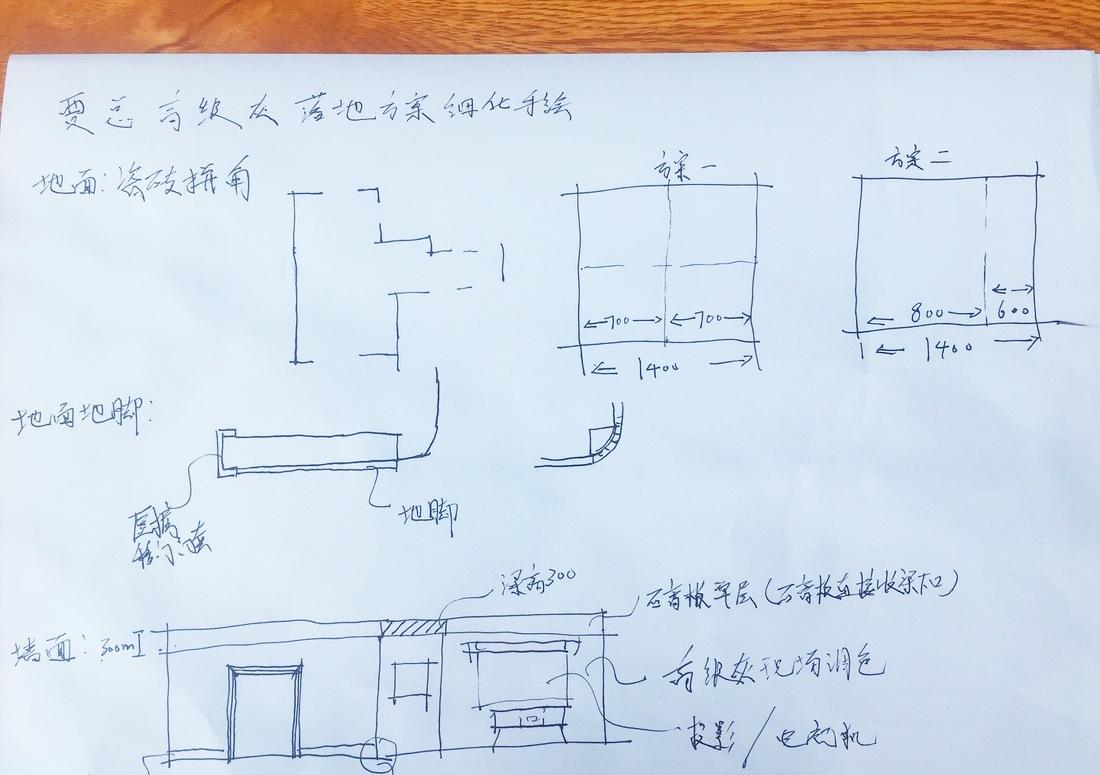 贾总高级灰落地方案细化手绘
地面:瓷砖拼角
方案一
方案二
700
700
1400
800
600
1400
地面地脚:
地脚
梁高300
石膏板单层(石膏板直接收梁口)
墙面:300mm
高级灰现场调色
投影/电视机